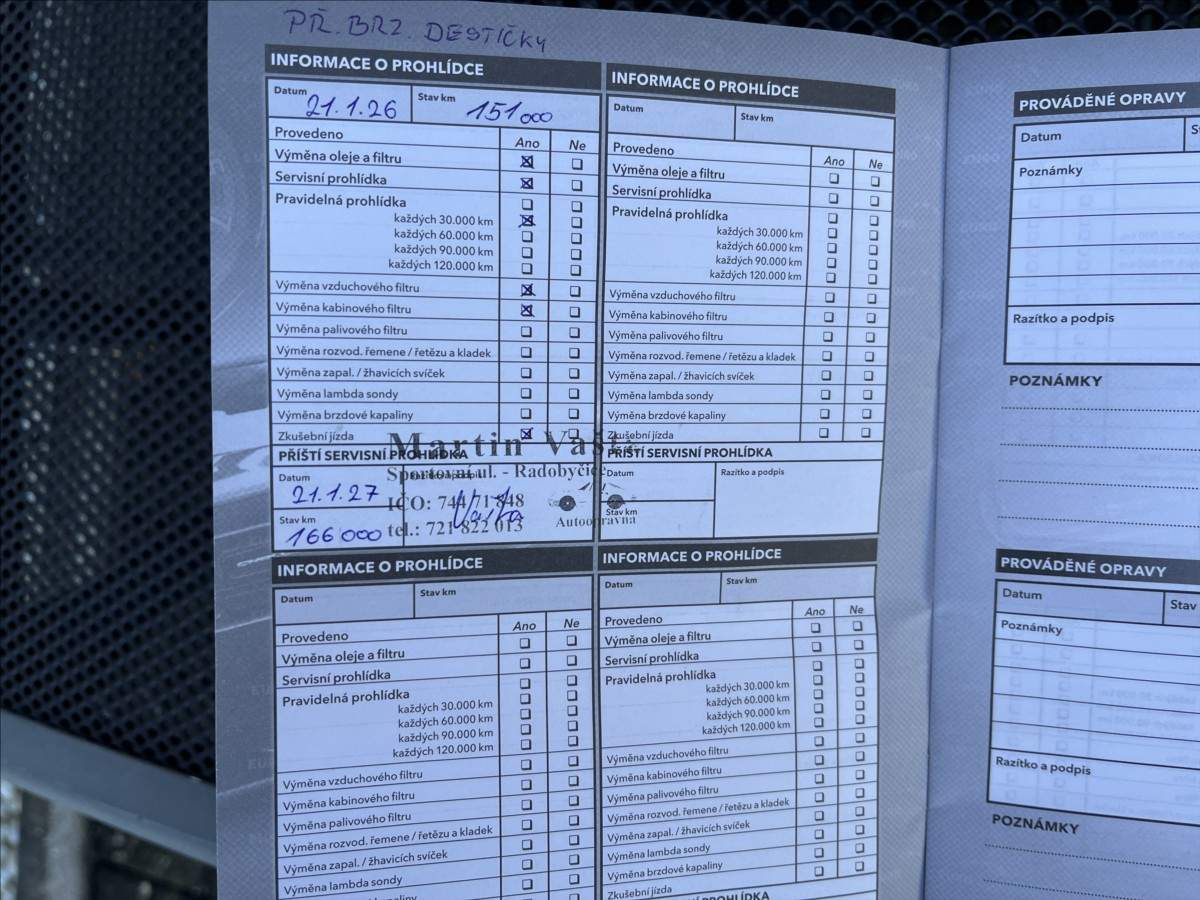 PŘ. BRZ. DESTIČKY
INFORMACE O PROHLÍDCE
Datum 21.1.26 Stav km 151000
Provedeno Ano Ne
Výměna oleje a filtru
Servisní prohlídka
Pravidelná prohlídka
každých 30.000 km
každých 60.000 km
každých 90.000 km
každých 120.000 km
Výměna vzduchového filtru
Výměna kabinového filtru
Výměna palivového filtru
Výměna rozvod. řemene / řetězu a kladek
Výměna zapal. / žhavicích svíček
Výměna lambda sondy
Výměna brzdové kapaliny
Zkušební jízda
PŘÍŠTÍ SERVISNÍ PROHLÍDKA
Datum
21.1.27
Stav km
166000
Martin
Sportovní ul. - Radobyčice
IČO: 744 71 848
tel.: 721 822 013
Autoopravna
INFORMACE O PROHLÍDCE
Datum Stav km
Provedeno Ano Ne
Výměna oleje a filtru
Servisní prohlídka
Pravidelná prohlídka
každých 30.000 km
každých 60.000 km
každých 90.000 km
každých 120.000 km
Výměna vzduchového filtru
Výměna kabinového filtru
Výměna palivového filtru
Výměna rozvod. řemene / řetězu a kladek
Výměna zapal. / žhavicích svíček
Výměna lambda sondy
Výměna brzdové kapaliny
Zkušební jízda
PŘÍŠTÍ SERVISNÍ PROHLÍDKA
Datum Razítko a podpis
Stav km
INFORMACE O PROHLÍDCE
Datum Stav km
Provedeno Ano Ne
Výměna oleje a filtru
Servisní prohlídka
Pravidelná prohlídka
každých 30.000 km
každých 60.000 km
každých 90.000 km
každých 120.000 km
Výměna vzduchového filtru
Výměna kabinového filtru
Výměna palivového filtru
Výměna rozvod. řemene / řetězu a kladek
Výměna zapal. / žhavicích svíček
Výměna lambda sondy
INFORMACE O PROHLÍDCE
Datum Stav km
Provedeno Ano Ne
Výměna oleje a filtru
Servisní prohlídka
Pravidelná prohlídka
každých 30.000 km
každých 60.000 km
každých 90.000 km
každých 120.000 km
Výměna vzduchového filtru
Výměna kabinového filtru
Výměna palivového filtru
Výměna rozvod. řemene / řetězu a kladek
Výměna zapal. / žhavicích svíček
Výměna lambda sondy
Výměna brzdové kapaliny
Zkušební jízda
PROVÁDĚNÉ OPRAVY
Datum
Poznámky
Razítko a podpis
POZNÁMKY
PROVÁDĚNÉ OPRAVY
Datum Stav
Poznámky
Razítko a podpis
POZNÁMKY